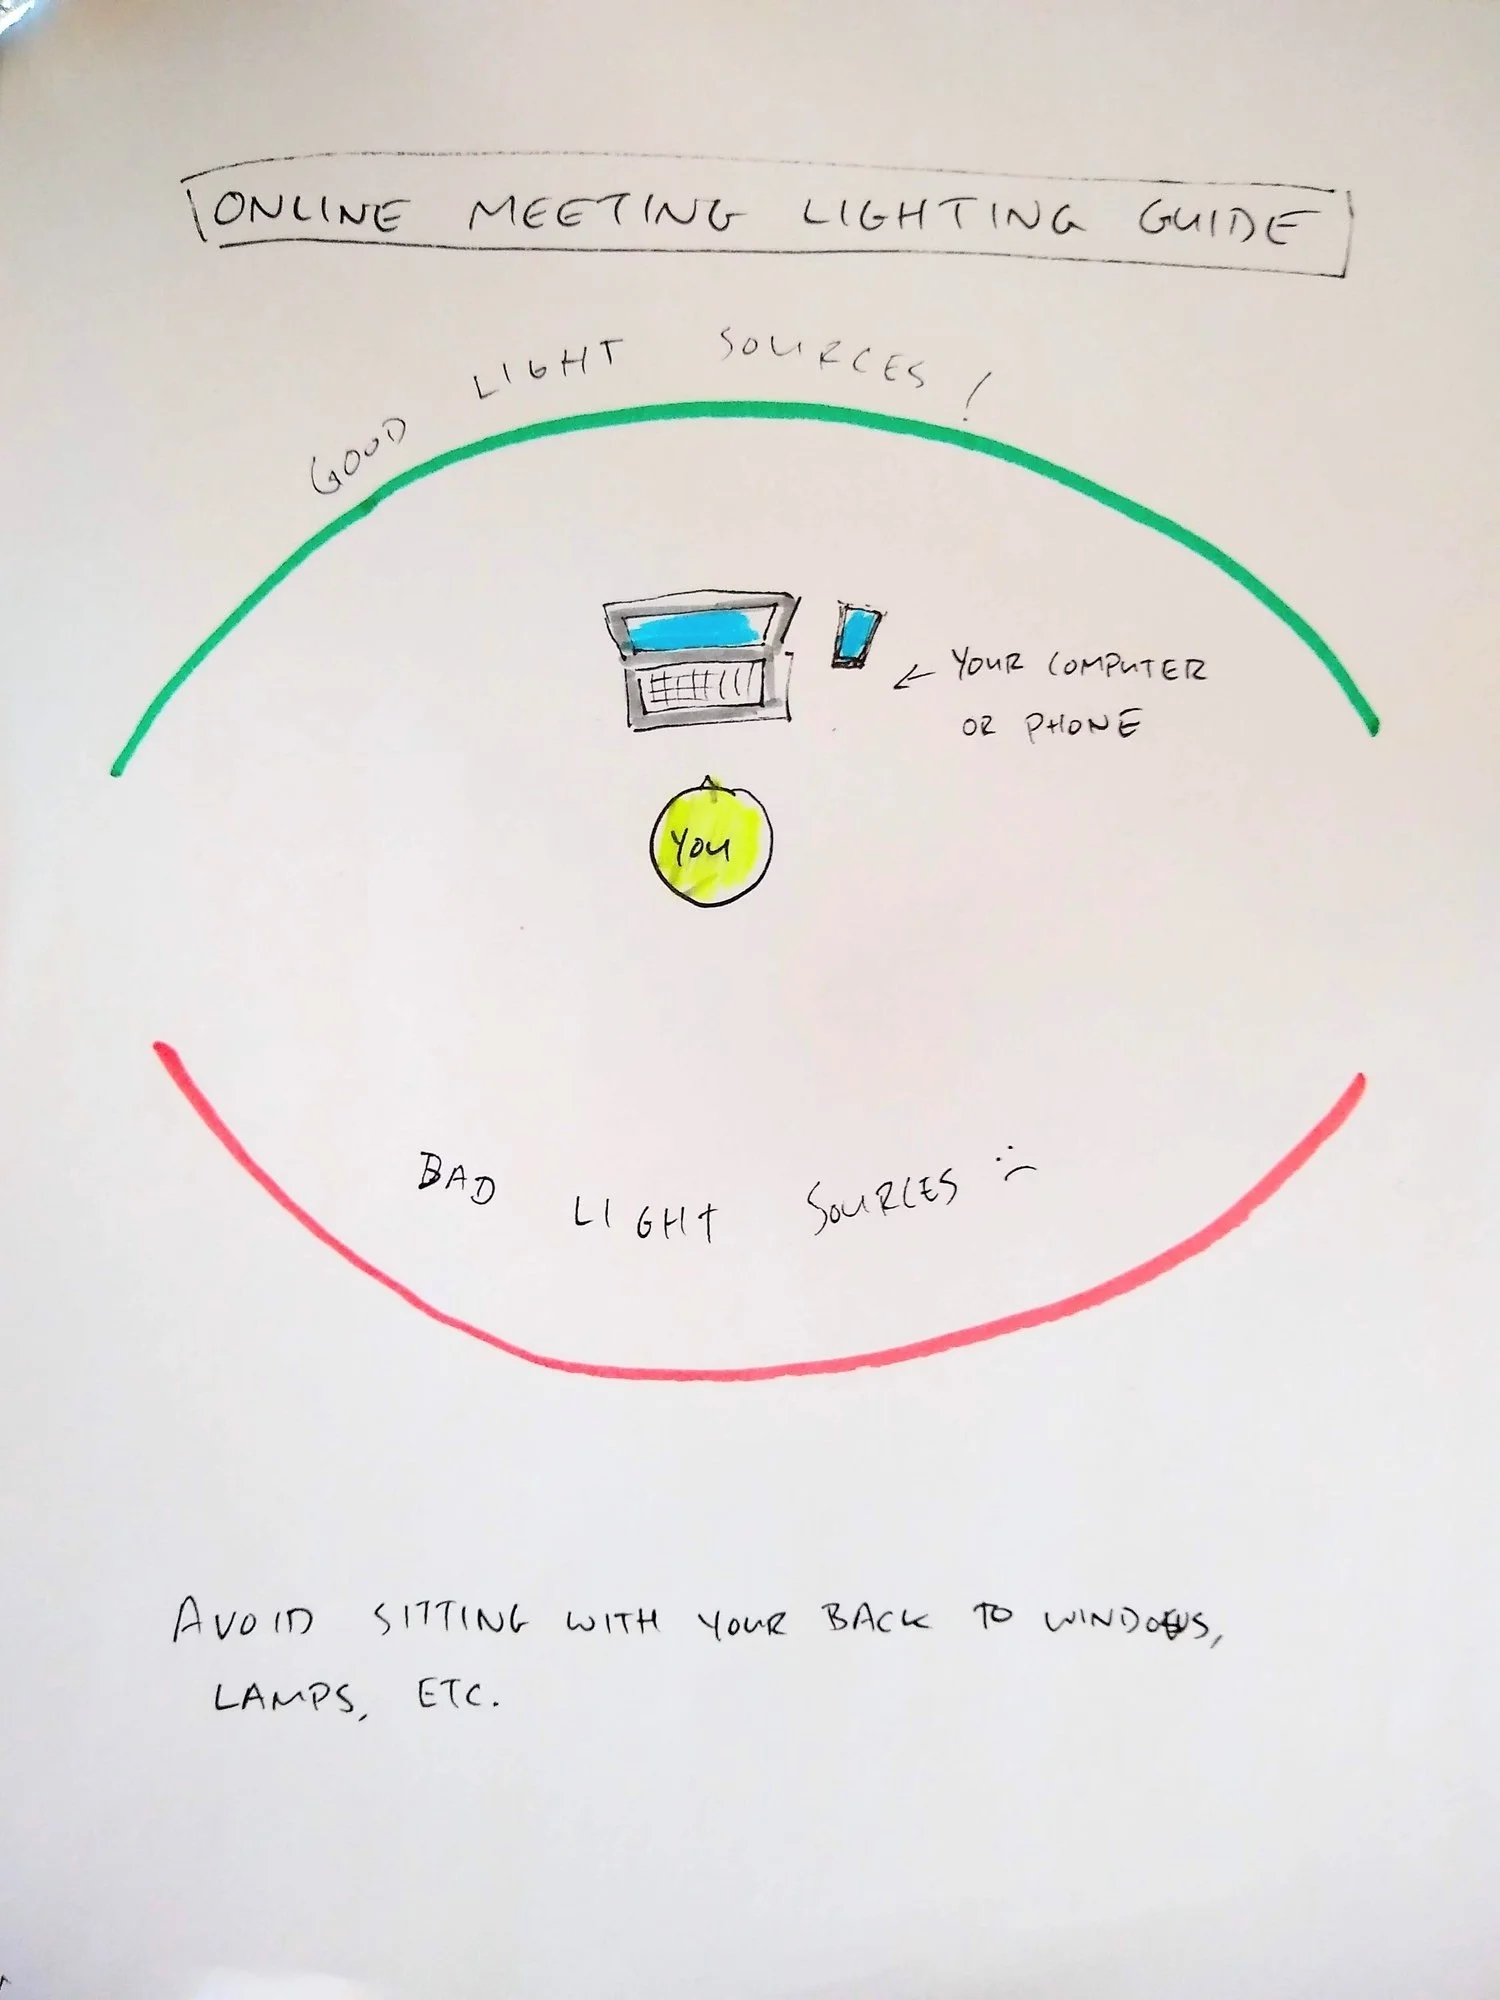 ONLINE MEETING LIGHTING GUIDE
GOOD LIGHT SOURCES!
← YOUR COMPUTER
OR PHONE
YOU
BAD LIGHT SOURCES :(
AVOID SITTING WITH YOUR BACK TO WINDOWS,
LAMPS, ETC.